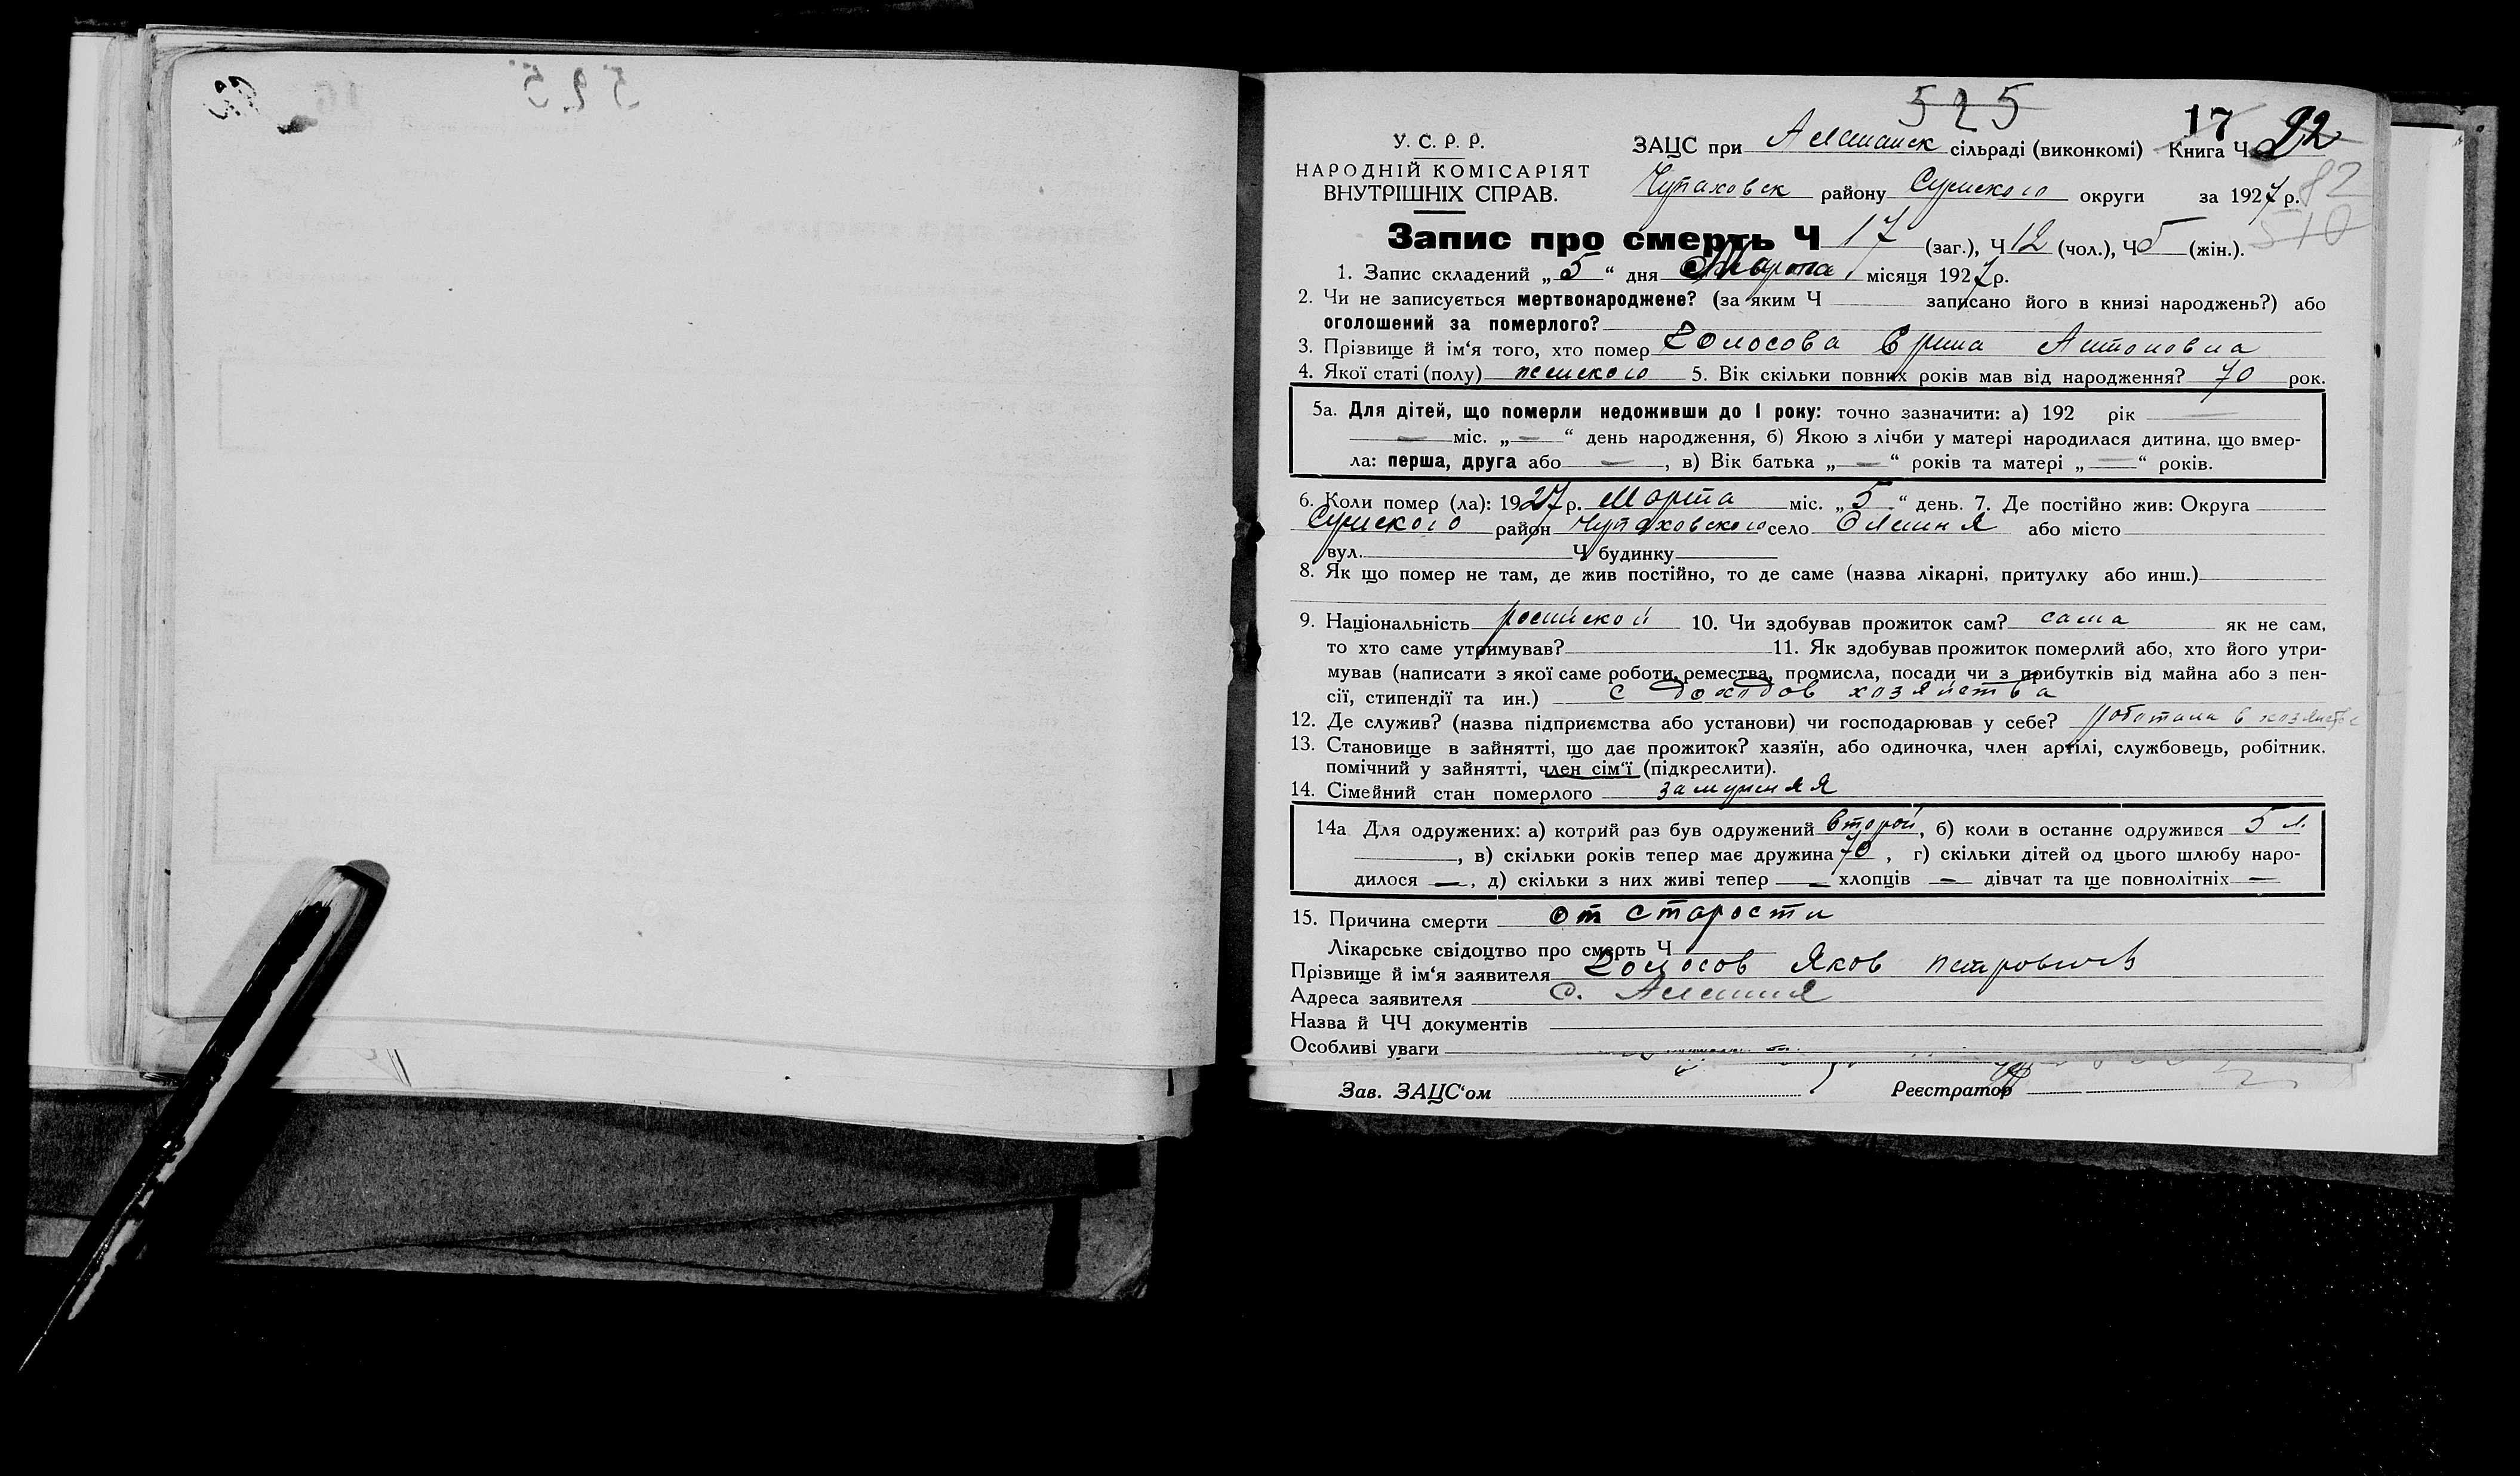 525
17 92
У. С. Р. Р.
НАРОДНІЙ КОМІСАРІЯТ
ВНУТРІШНІХ СПРАВ.
ЗАЦС при сільраді (виконкомі) Книга Ч
82
Чупаховск району Сумского округи за 1927 р.
510
Запис про смерть Ч 17 (заг.), Ч 12 (чол.), Ч 5 (жін.).
1. Запис складений „5“ дня Марта місяця 1927 р.
2. Чи не записується мертвонароджене? (за яким Ч записано його в книзі народжень?) або
оголошений за померлого?
3. Прізвище й ім‘я того, хто помер Голосова Антоновна
4. Якої статі (полу) женского 5. Вік скільки повних років мав від народження? 70 рок.
5а. Для дітей, що померли недоживши до 1 року: точно зазначити: а) 192 рік —
— міс. „—“ день народження, б) Якою з лічби у матері народилася дитина, що вмер-
ла: перша, друга або — , в) Вік батька „—“ років та матері „—“ років.
6. Коли помер (ла): 1927 р. Марта міс. „5“ день. 7. Де постійно жив: Округа
Сумского район Чупаховского село або місто
вул. Ч будинку
8. Як що помер не там, де жив постійно, то де саме (назва лікарні, притулку або инш.)
9. Національність росийской 10. Чи здобував прожиток сам? сама як не сам,
то хто саме утримував? 11. Як здобував прожиток померлий або, хто його утри-
мував (написати з якої саме роботи, ремества, промисла, посади чи з прибутків від майна або з пен-
сії, стипендії та ин.) с доходов хозяйства
12. Де служив? (назва підприємства або установи) чи господарював у себе? роботала в хозяистве
13. Становище в зайнятті, що дає прожиток? хазяїн, або одиночка, член артілі, службовець, робітник.
помічний у зайнятті, член сім‘ї (підкреслити).
14. Сімейний стан померлого замужняя
14а Для одружених: а) котрий раз був одружений второй, б) коли в останнє одружився 5 л.
, в) скільки років тепер має дружина 70 , г) скільки дітей од цього шлюбу наро-
дилося — , д) скільки з них живі тепер — хлопців — дівчат та ще повнолітніх —
15. Причина смерти от старости
Лікарське свідоцтво про смерть Ч
Прізвище й ім‘я заявителя Голосов Яков петрович
Адреса заявителя с.
Назва й ЧЧ документів
Особливі уваги
Зав. ЗАЦС‘ом Реєстратор